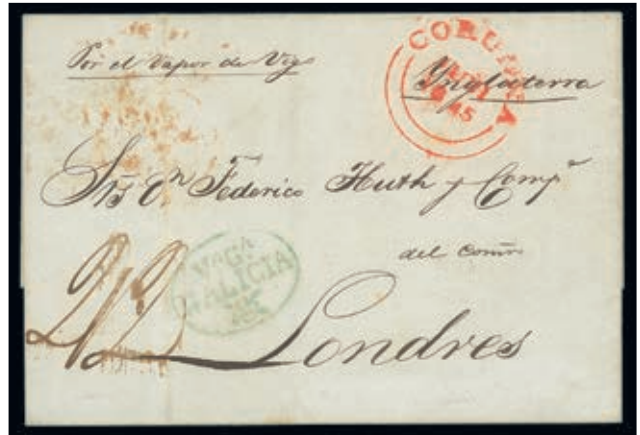 Por el Vapor de Vigo
CORUÑA
1845
Ynglaterra
Sres Dn Federico Huth y Compa
del comº
2/2
VGA
GALICIA
Londres